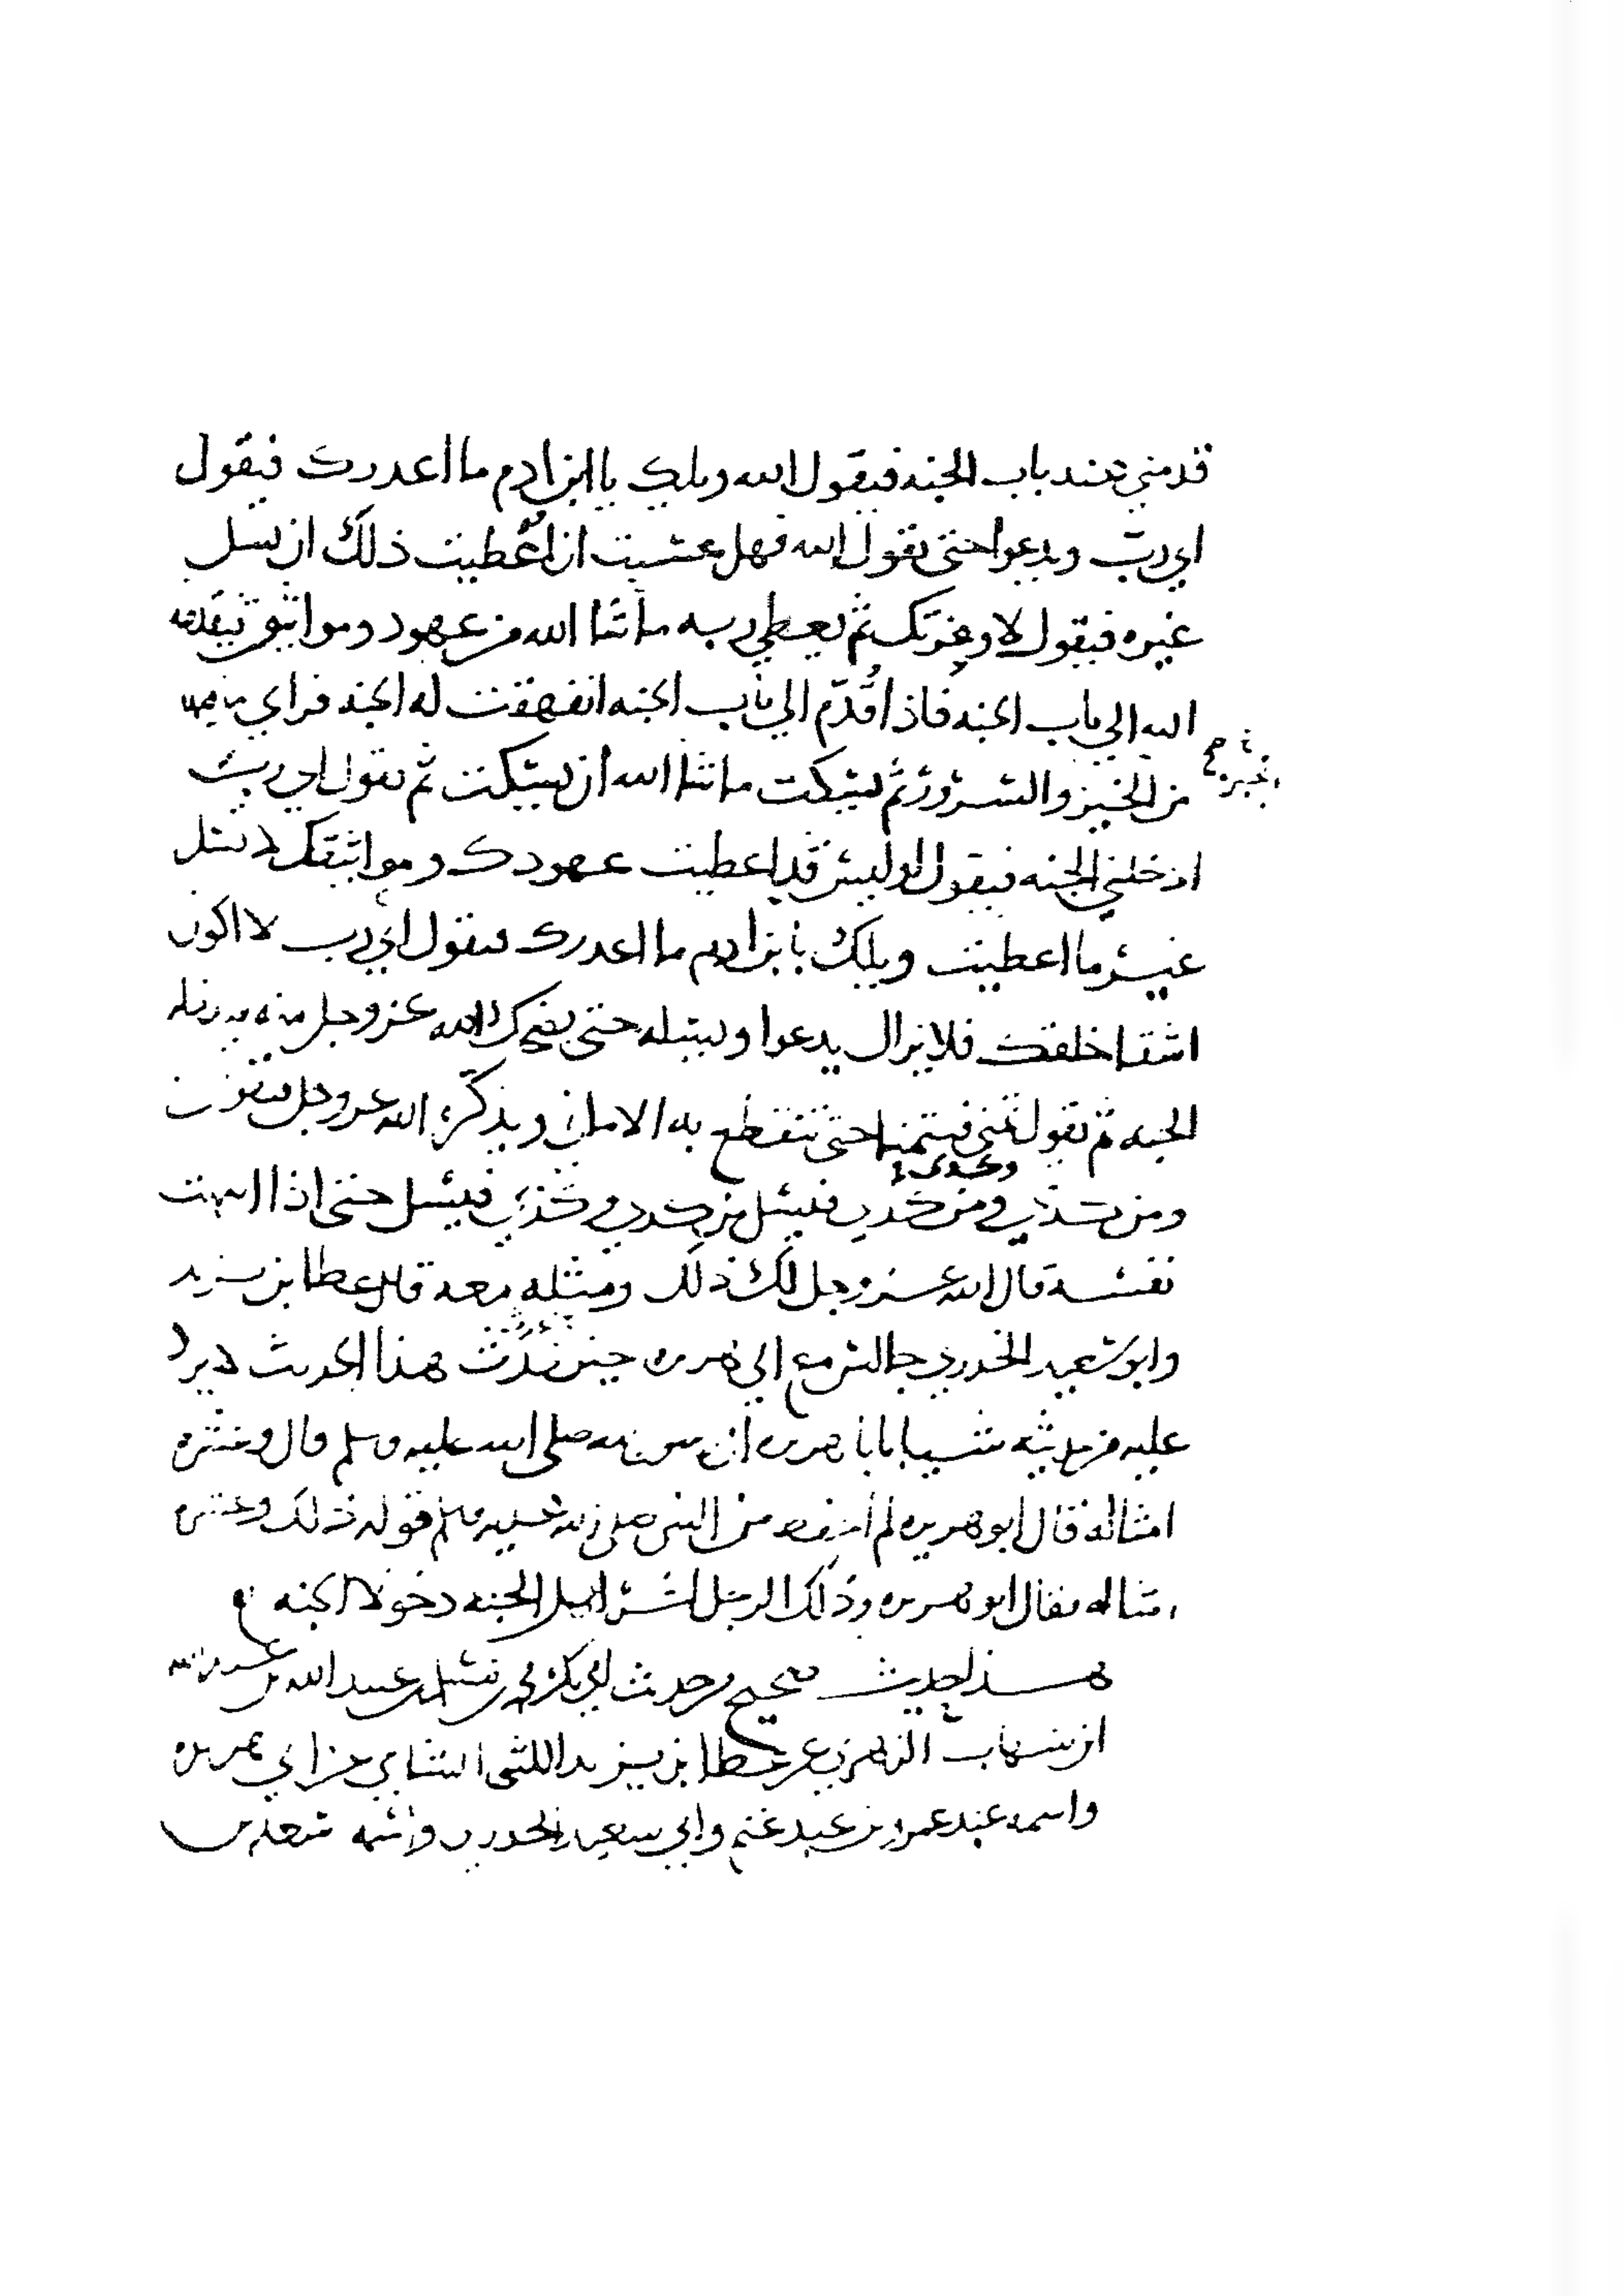 قدمني عند باب الجنه فيقول الله ويلك يا ابن ادم ما اعدرك فيقول
اي رب ويدعوا حتى يقول الله فهل عسيت ان اعطيت ذلك ان تسل
غيره فيقول لا وعزتك ثم يعطي ربه ما شا الله من عهود ومواثيق فيقدمه
الله الي باب الجنه فاذا قدم الي باب الجنه انفهقت له الجنه فراي ما فيها
من الخير والسرور ثم يسكت ما شا الله ان يسكت ثم يقول اي رب
ادخلني الجنه فيقول اوليس قد اعطيت عهودك ومواثيقك لا تسل
غير ما اعطيت ويلك يا بن ادم ما اعدرك فيقول اي رب لا اكون
اشقا خلقك فلا يزال يدعوا ويسله حتى يضحك الله عز وجل منه
الجنه ثم يقول تمنى فيتمنا حتى تنقطع به الاماني ويذكره الله عز وجل فيقول
ومن كذي ومن كذي فيسل من كذي وكذي فيسل حتى اذا انتهت
نفسه قال الله عز وجل لك ذلك ومثله معه قال عطا بن يزيد
وابو سعيد الخدري جالس مع ابي هريره حين حدث بهذا الحديث لا يرد
عليه من حديثه شيا يابا هريره ان رسول الله صلى الله عليه وسلم قال وعشره
امثاله قال ابو هريره لم احفظ من النبي صلى الله عليه وسلم قوله ذلك وعشره
امثاله فقال ابو هريره وذلك الرجل اخر اهل الجنه دخولا الجنه
هذا حديث صحيح من حديث ابي بكر محمد بن مسلم بن عبيد الله بن عبد الله
ابن شهاب الزهري عن عطا بن يزيد الليثي الشامي عن ابي هريره
واسمه عبد عمرو بن عبد غنم وابي سعيد الخدري واسمه سعد بن